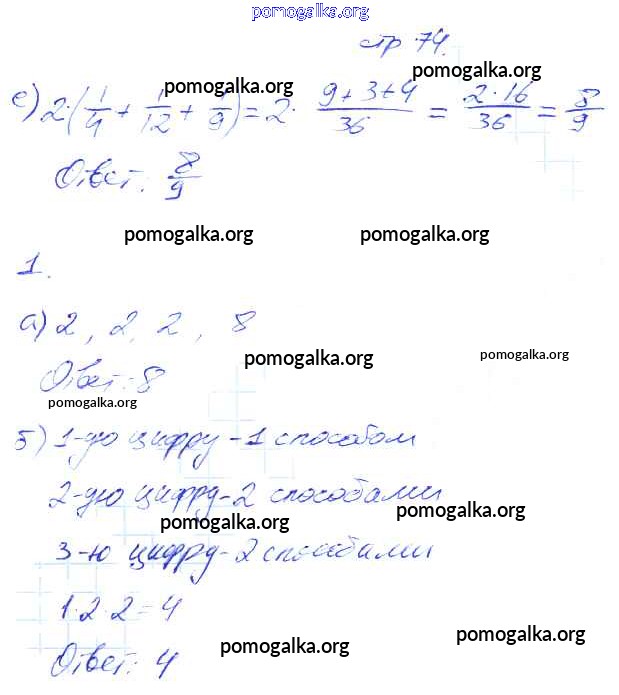 pomogalka.org
стр 74.
pomogalka.org pomogalka.org
е) 2·(1/4 + 1/12 + 1/9) = 2· (9+3+4)/36 = (2·16)/36 = 8/9
Ответ: 8/9
pomogalka.org pomogalka.org
1.
а) 2, 2, 2, 8
pomogalka.org pomogalka.org
Ответ: 8
pomogalka.org
б) 1-ую цифру - 1 способом
2-ую цифру - 2 способами
pomogalka.org pomogalka.org
3-ю цифру - 2 способами
1·2·2=4
pomogalka.org pomogalka.org
Ответ: 4